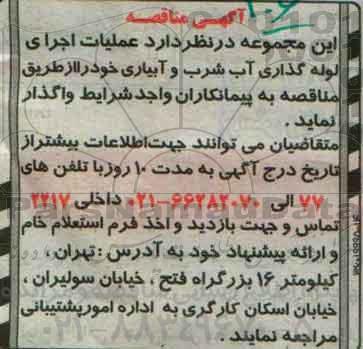 آگهی مناقصه
این مجموعه درنظردارد عملیات اجرای
لوله گذاری آب شرب و آبیاری خودرااز‌طریق
مناقصه به پیمانکاران واجد شرایط واگذار
نماید .
متقاضیان می توانند جهت‌اطلاعات بیشتراز
تاریخ درج آگهی به مدت ۱۰ روزبا تلفن های
۷۷ الی ۶۶۲۸۲۰۷۰-۰۲۱ داخلی ۲۲۱۷
تماس و جهت بازدید و اخذ فرم استعلام خام
و ارائه پیشنهاد خود به آدرس : تهران ،
کیلومتر ۱۶ بزرگراه فتح ، خیابان سولیران ،
خیابان اسکان کارگری به اداره امورپشتیبانی
مراجعه نمایند .